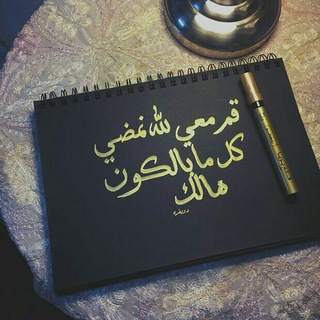 قم معي لله نمضي
كل ما بالكون
هالك